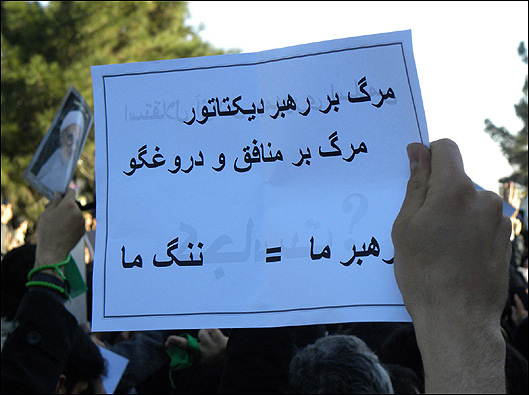 مرگ بر رهبر دیکتاتور
مرگ بر منافق و دروغگو
رهبر ما = ننگ ما